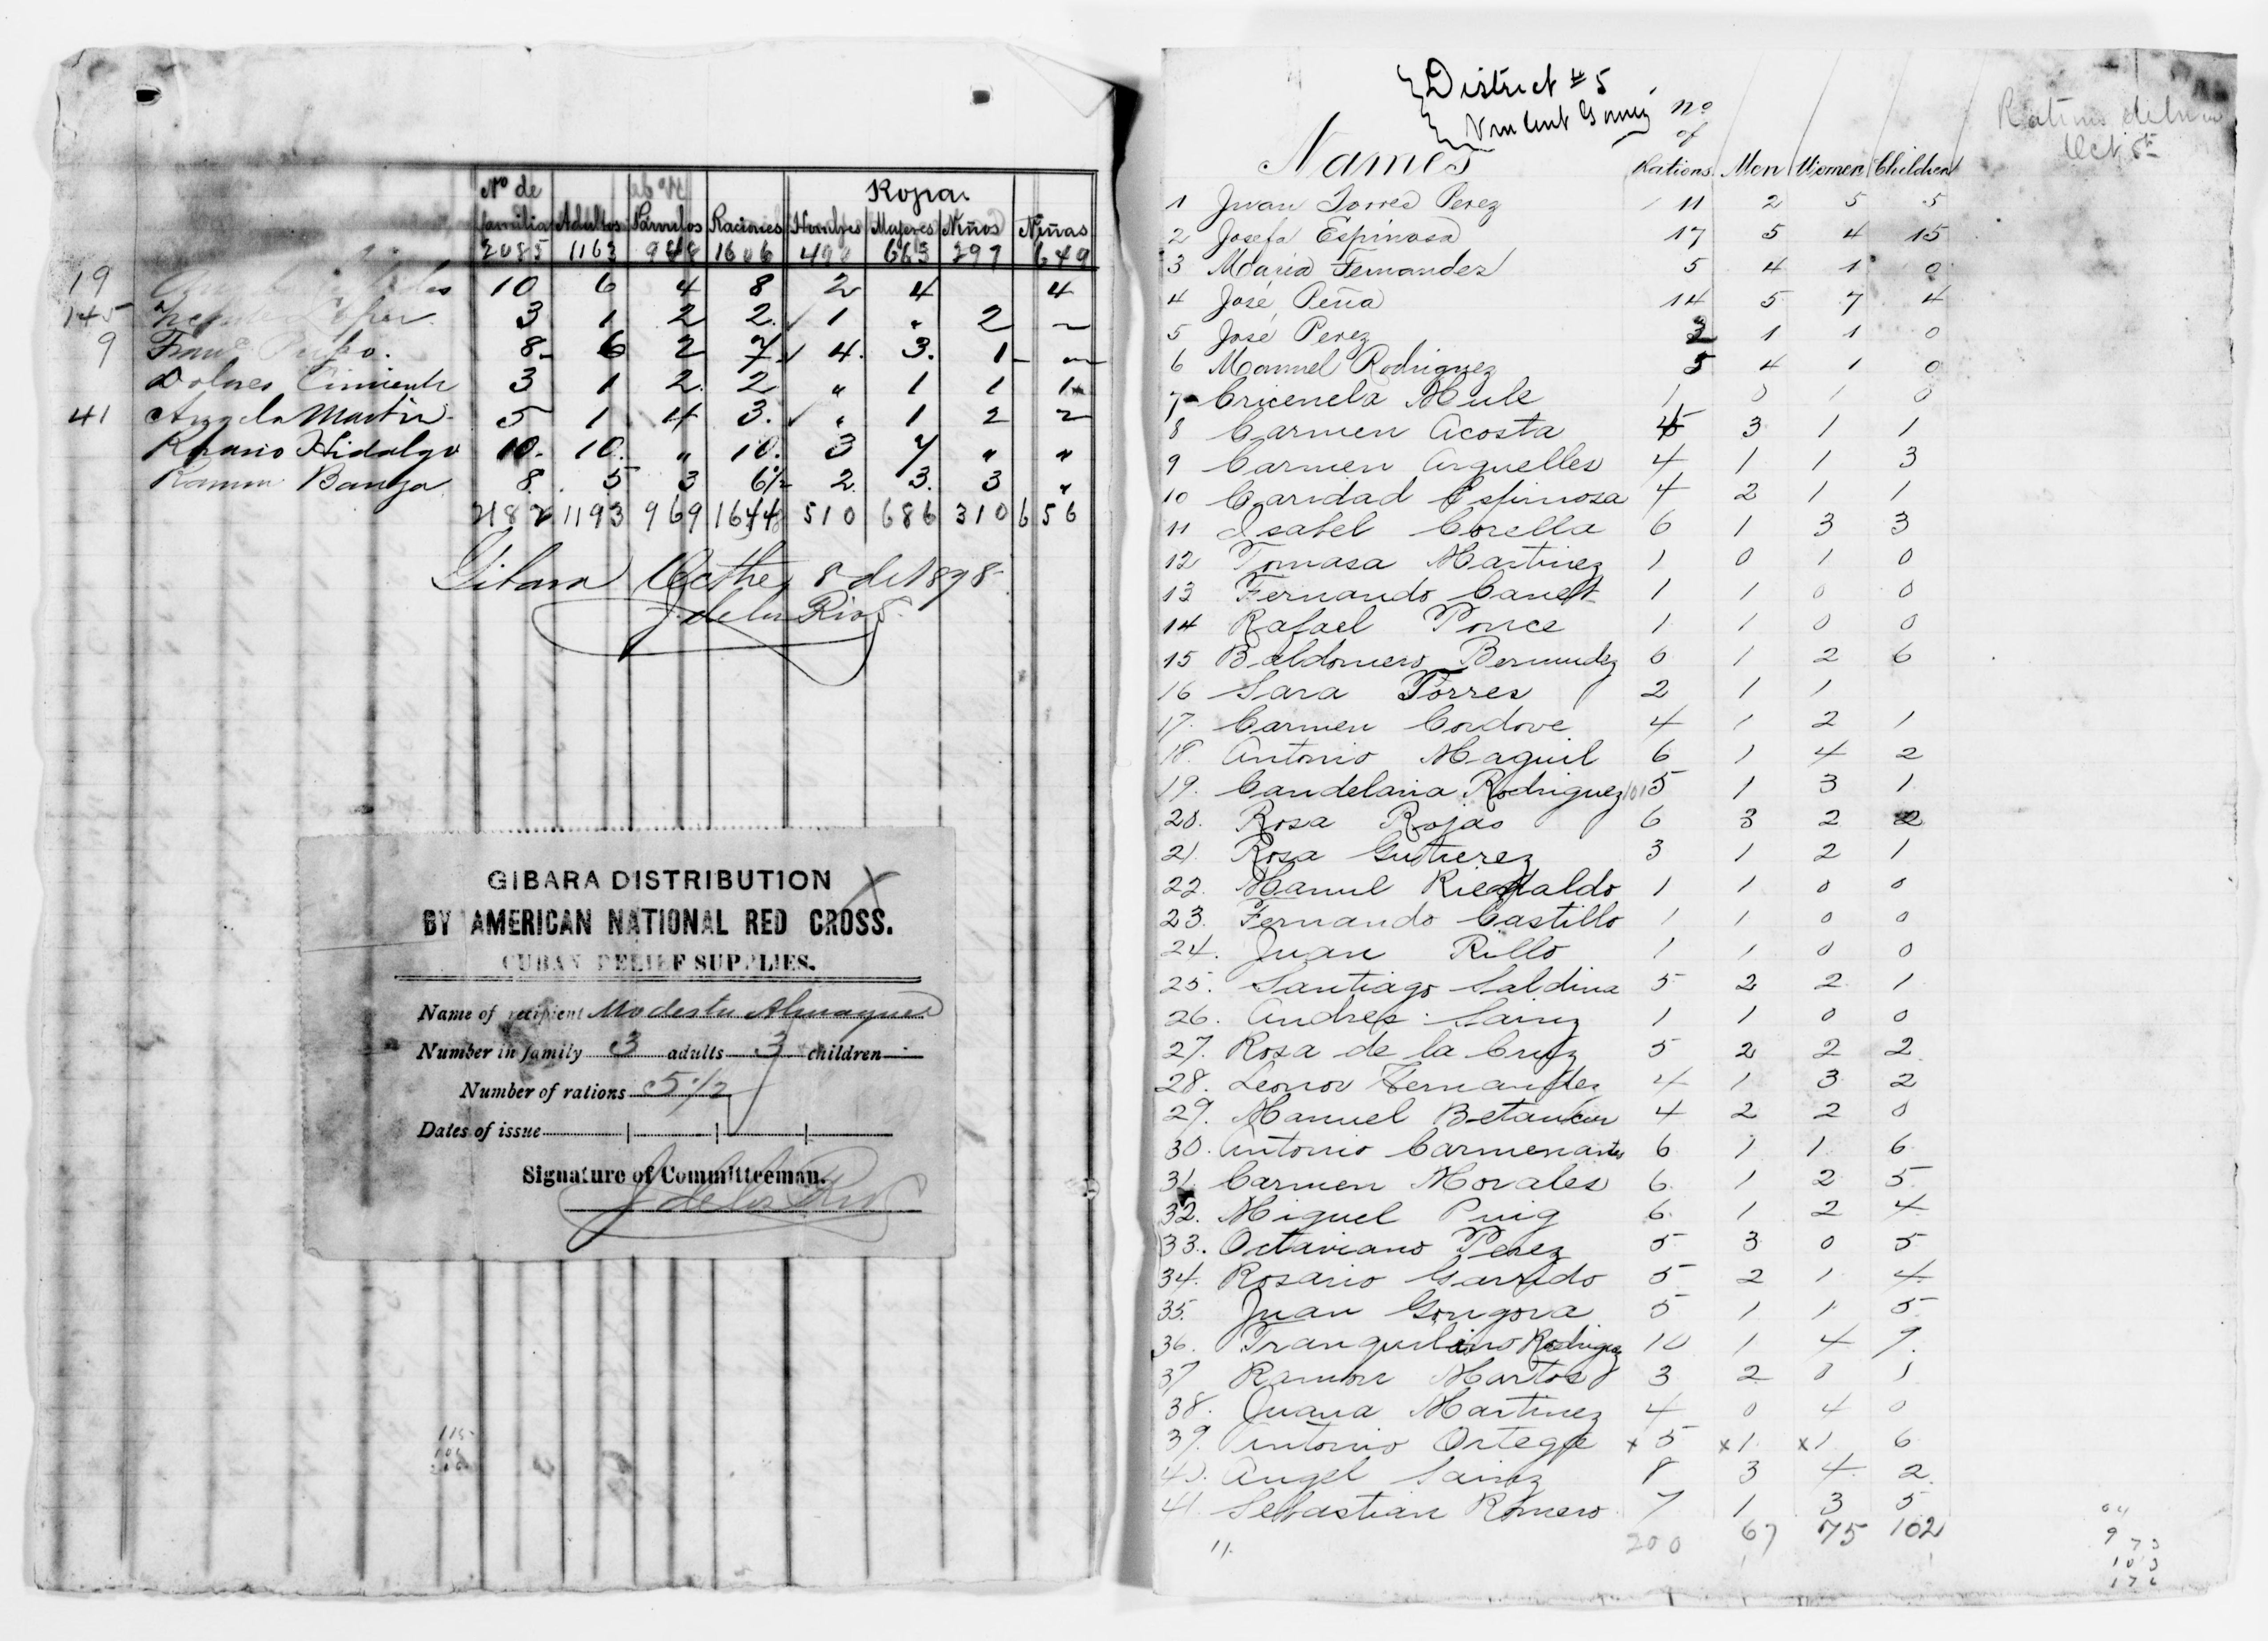 Nº de Ropa.
familia Adultos Párvulos Raciones Hombres Mujeres Niños Niñas
2085 1163 948 1606 490 663 297 649
19 10 6 4 8 2 4 4
145 3 1 2 2. 1 " 2 ~
9 Franco. 8- 6 2 7- 4. 3. 1- ~
Dolores 3 1 2. 2 " 1 1 1
41 Angela Martin 5 1 4 3. " 1 2 2
Rosario Hidalgo 10. 10. " 10. 3 7 " "
Ramon Banga 8. 5 3 6½ 2. 3. 3 "
2182 1193 969 1644 510 686 310 656
Gibara Octbre 8 de 1898
J de los Rios.
GIBARA DISTRIBUTION X
BY AMERICAN NATIONAL RED CROSS.
CUBAN RELIEF SUPPLIES.
Name of recipient Modesta Almaguer
Number in family 3 adults 3 children
Number of rations 5 1/2
Dates of issue
Signature of Committeeman.
J de los Rios
115
District # 5
Vincent Gomez
Names No of Rations Men Women Children
Oct 8th
1 Juan Torres Perez 11 2 5 5
2 Josefa Espinosa 17 5 4 15
3 Maria Fernandez 5 4 1 0
4 José Peña 14 5 7 4
5 José Perez 2 1 1 0
6 Manuel Rodriguez 5 4 1 0
7 Mule 1 0 1 0
8 Carmen Acosta 5 3 1 1
9 Carmen Arguelles 4 1 1 3
10 Caridad Espinosa 4 2 1 1
11 Isabel Corella 6 1 3 3
12 Tomasa Martinez 1 0 1 0
13 Fernando Canest 1 1 0 0
14 Rafael Ponce 1 1 0 0
15 Baldomero Bermudez 6 1 2 6
16 Sara Torres 2 1 1
17. Carmen Cordove 4 1 2 1
18. Antonio Maguil 6 1 4 2
19. Candelaria Rodriguez 5 1 3 1
20. Rosa Rojas 6 3 2 2
21. Rosa Gutierez 3 1 2 1
22. Manul 1 1 0 0
23. Fernando Castillo 1 1 0 0
24. Juan Rillo 1 1 0 0
25. Santiago Saldina 5 2 2 1
26. Andres Sainz 1 1 0 0
27. Rosa de la Cruz 5 2 2 2
28. Leonor Fernandez 4 1 3 2
29. Manuel Betancur 4 2 2 0
30. Antonio Carmenantes 6 1 1 6
31. Carmen Morales 6 1 2 5
32. Miguel Puig 6 1 2 4
33. Octaviano Perez 5 3 0 5
34. Rosario Garrido 5 2 1 4
35. Juan Gongora 5 1 1 5
36. Tranquilino Rodriguez 10 1 4 7.
37 Ramon Martos 3 2 0 1
38. Juana Martinez 4 0 4 0
39. Antonio Ortega x 5 x1 x1 6
40. Angel Sainz 8 3 4 2
41. Sebastian Romero 7 1 3 5
11. 200 67 75 102
9 73
103
176